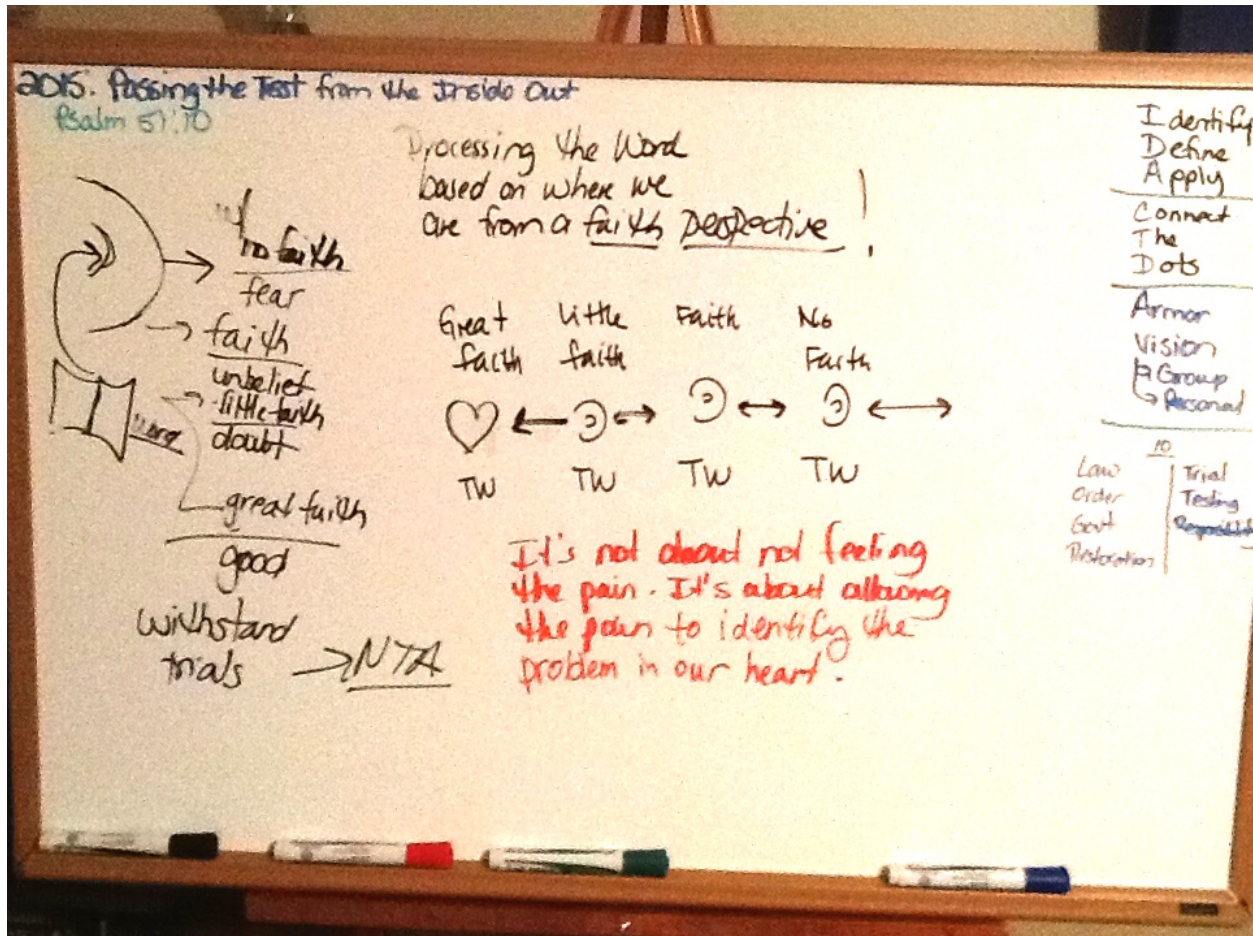 2015. Passing the Test from the Inside Out
Psalm 51:10
no faith
fear
faith
unbelief
little faith
doubt
great faith
good
withstand
trials → NTA
Processing the Word
based on where we
are from a faith perspective!
Great Little Faith No
faith faith Faith
TW TW TW TW
It's not about not feeling
the pain. It's about allowing
the pain to identify the
problem in our heart.
Identify
Define
Apply
Connect
The
Dots
Armor
Vision
Group
Personal
10
Law Trial
Order Testing
Govt
Restoration